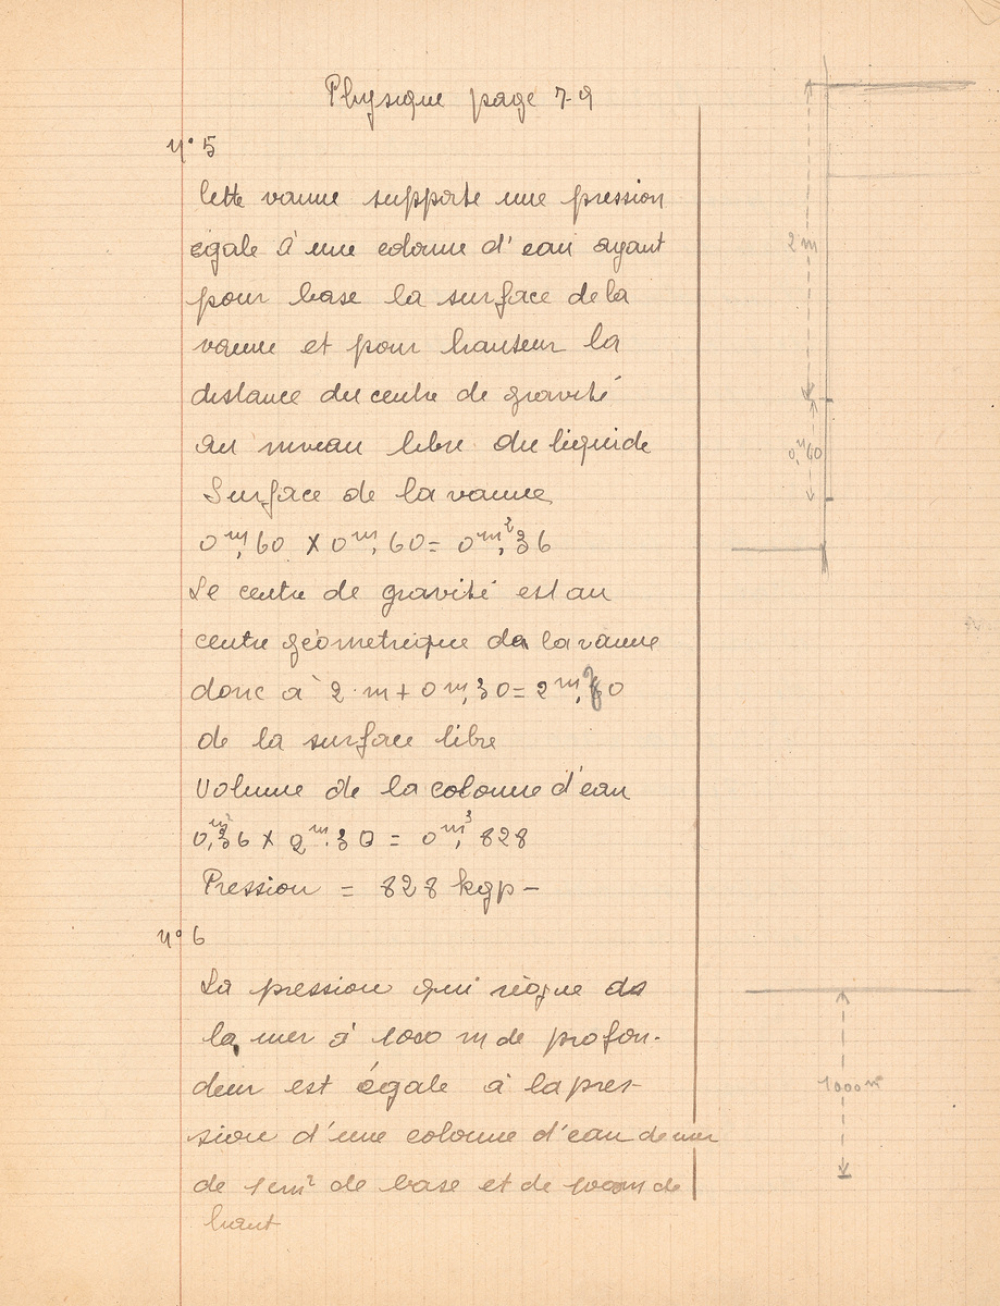 Physique page 7-9
n° 5
Cette vanne supporte une pression
égale à une colonne d'eau ayant
pour base la surface de la
vanne et pour hauteur la
distance du centre de gravité
au niveau libre du liquide
Surface de la vanne
0m,60 x 0m,60 = 0m²,36
Le centre de gravité est au
centre géometrique de la vanne
donc à 2 m + 0m,30 = 2m,30
de la surface libre
Volume de la colonne d'eau
0,m²36 x 2m.30 = 0m³,828
Pression = 828 kgp -
n° 6
La pression qui règne ds
la mer à 1000 m de profon-
deur est égale à la pres-
sion d'une colonne d'eau de mer
de 1cm² de base et de 1000m de
haut
2 m
0,m60
1000m